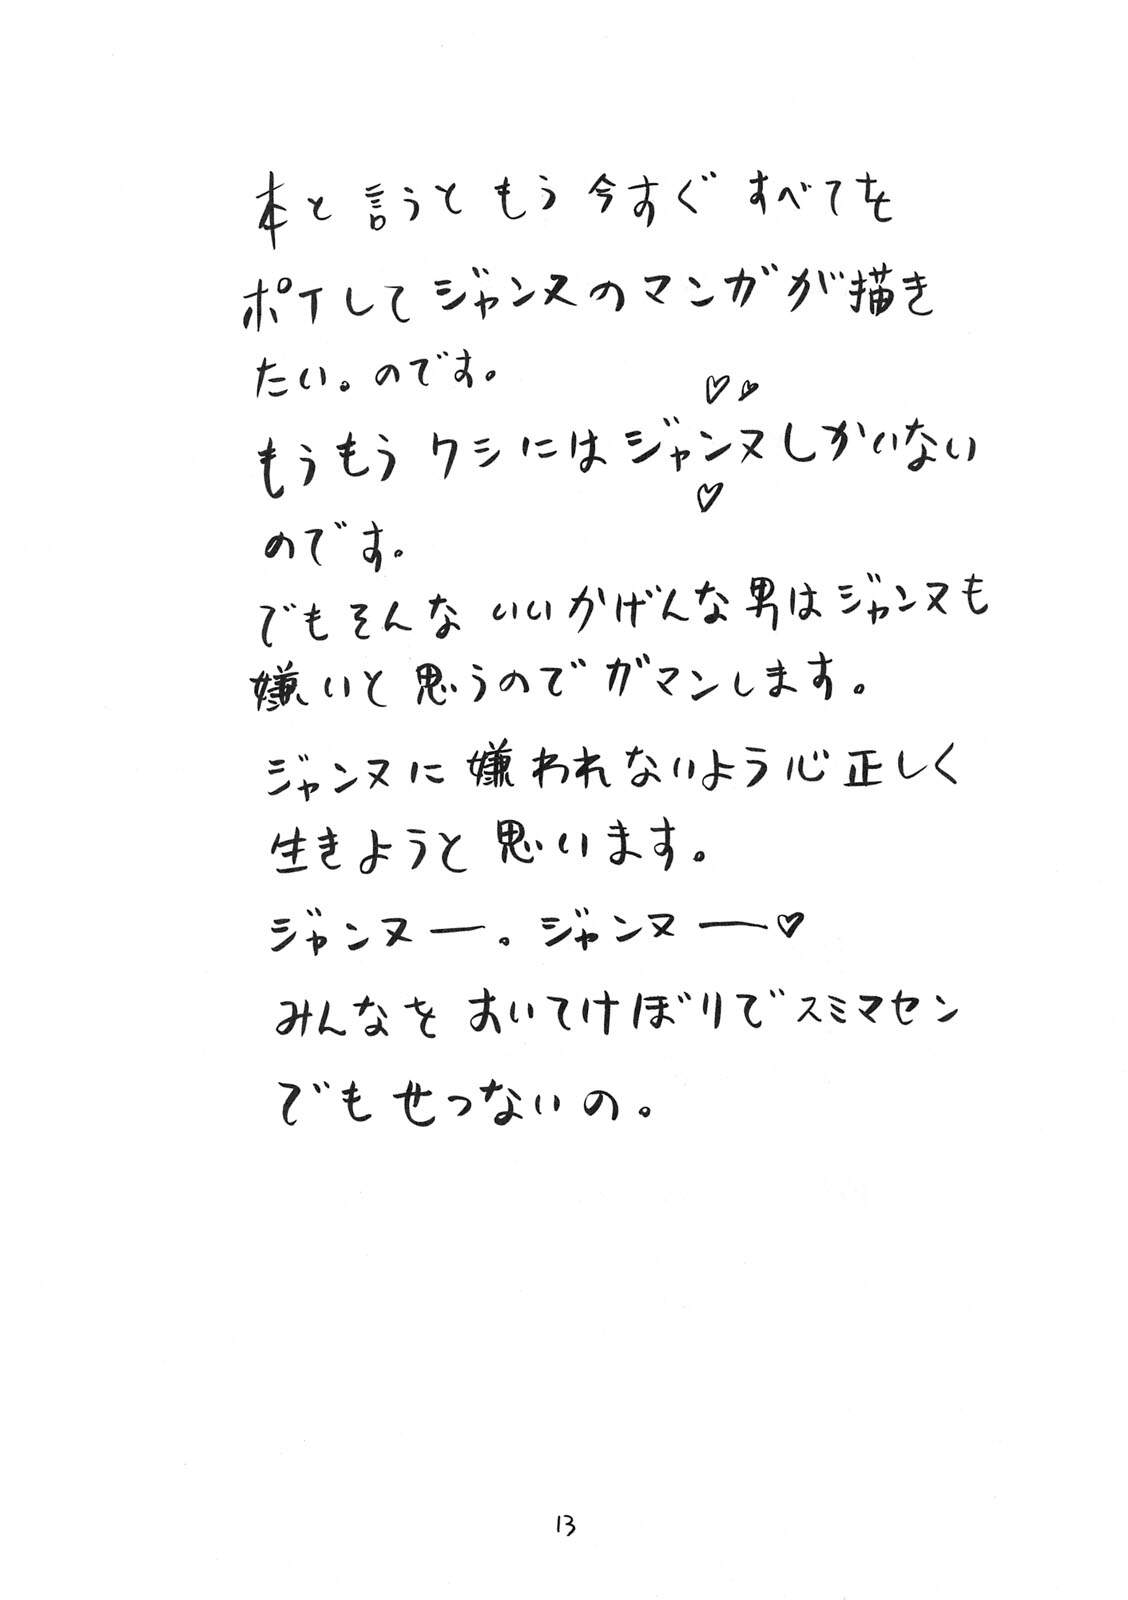 本と言うともう今すぐすべてを
ポイしてジャンヌのマンガが描き
たい。のです。
もうもうワシにはジャンヌしかいない
のです。
でもそんないいかげんな男はジャンヌも
嫌いと思うのでガマンします。
ジャンヌに嫌われないよう心正しく
生きようと思います。
ジャンヌー。ジャンヌー♡
みんなをおいてけぼりでスミマセン
でもせつないの。
13